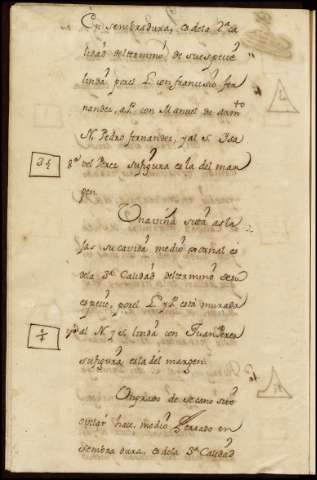 En sembradura, es dela 2ª ca
lidad del termino de su especie
linda por el L con francisco fer
nandez, al P. con Manuel de
N. Pedro fernandez, y al S. Isa
3½
del Perez su figura es la del mar
gen.
Una viña sita as la
jas su cavida medio jornal es
dela 3ª Calidad del termino de su
especie, por el L. y P. está murada
al N. y S. linda con Juan Perez
su figura es la del margen.
Un prado de secano sito
hace medio ferrado en
sembradura, es dela 3ª Calidad